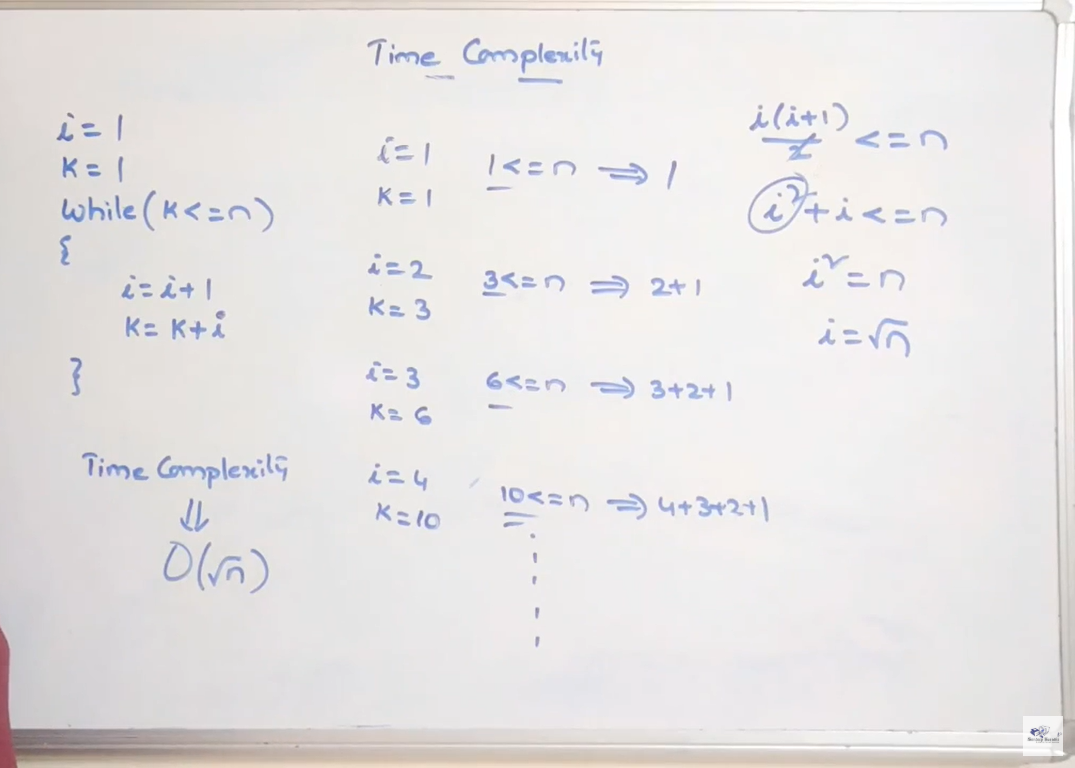 Time Complexity
i = 1
K = 1
while(K<=n)
{
i = i+1
K = K+i
}
Time Complexity
⇓
O(√n)
i=1
K=1
1<=n ⇒ 1
i=2
K=3
3<=n ⇒ 2+1
i=3
K=6
6<=n ⇒ 3+2+1
i=4
K=10
10<=n ⇒ 4+3+2+1
i(i+1)/2 <=n
i²+i<=n
i²=n
i=√n